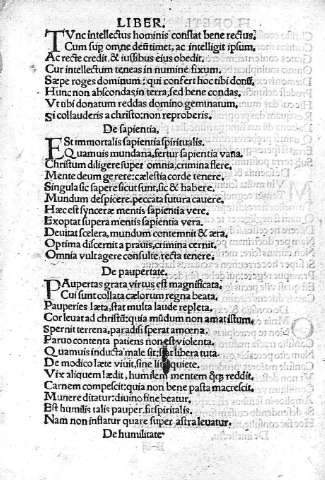 LIBER.
TVnc intellectus hominis constat bene rectus,
Cum sup omne deũ timet, ac intelligit ipsum,
Ac recte credit. & iussibus eius obedit.
Cur intellectum teneas in numine fixum.
Sæpe roges dominum: qui confert hoc tibi donũ,
Hunc non abscondas, in terra, sed bene condas,
Vt ibi donatum reddas domino geminatum,
Si collauderis a christo: non reproberis.
De sapientia.
ESt immortalis sapientia spiritualis.
Quamuis mundana, fertur sapientia vana.
Christum diligere super omnia, crimina flere.
Mente deum gerere: cælestia corde tenere.
Singula sic sapere sicut sunt, sic & habere.
Mundum despicere, peccata futura cauere.
Hæc est synceræ mentis sapientia vere.
Exoptat supera mentis sapientia vera.
Deuitat scelera, mundum contemnit & æra,
Optima discernit a prauis, crimina cernit.
Omnia vult agere consulte. recta tenere.
De paupertate.
PAupertas grata virtus est magnificata,
Cui sunt collata cælorum regna beata.
Pauperies læta, stat multa laude repleta.
Cor leuat ad christũ: qui mũdum non amat istum,
Spernit terrena, paradisi sperat amœna.
Paruo contenta patiens non est violenta.
Quamuis inducta male sit, libera tuta.
De modico læte viuit, sine lite quiete.
Vix aliquem lædit, humilem mentem reddit.
Carnem compescit: quia non bene pasta macrescit.
Munere ditatur: diuino sine beatur.
Est humilis talis pauper. sic spiritalis.
Nam non inflatur quare super astra leuatur.
De humilitate